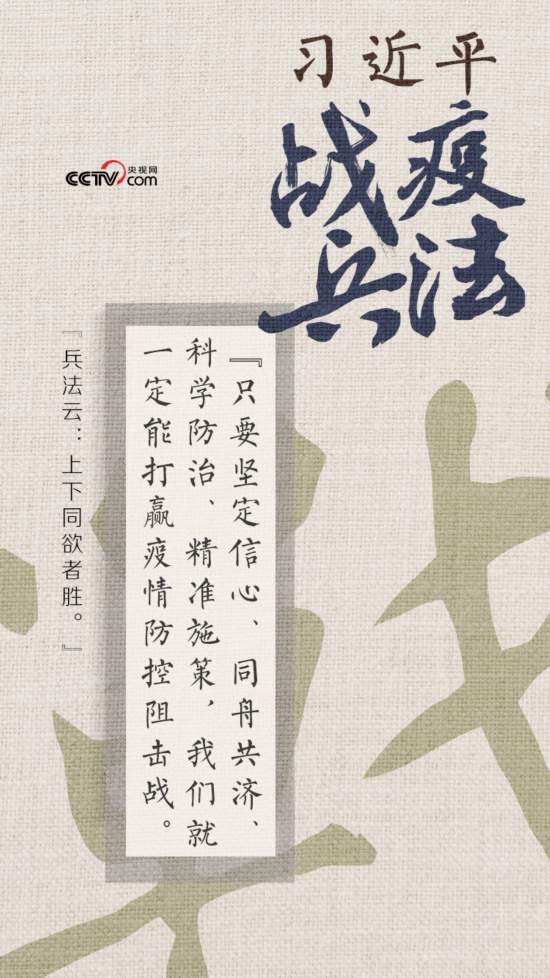 习近平
战疫
兵法
CCTV.com
央视网
『只要坚定信心、同舟共济、
科学防治、精准施策，我们就
一定能打赢疫情防控阻击战。
『兵法云：上下同欲者胜。』